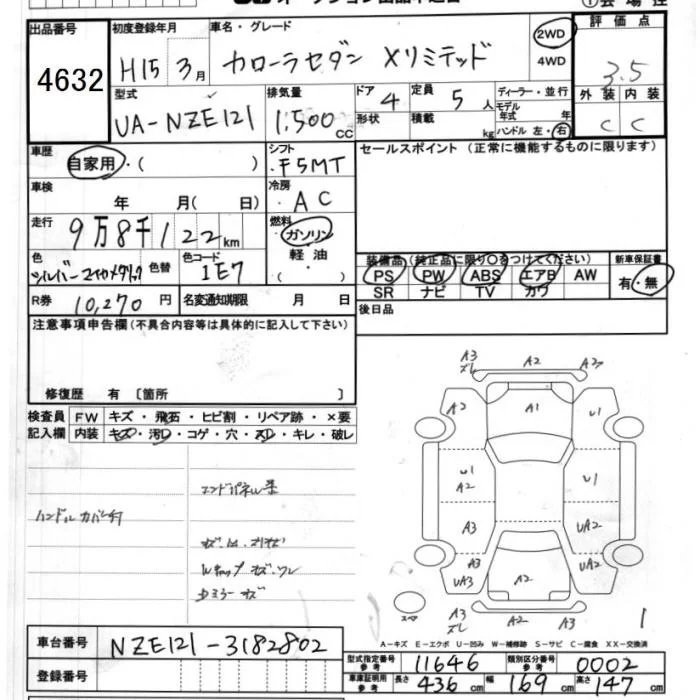 出品番号 初度登録年月 車名・グレード 2WD 評価点
4632 H15 3月 カローラセダン Xリミテッド 4WD 3.5
型式 排気量 ドア 4 定員 5人 ディーラー・並行 外装 内装
UA-NZE121 1,500cc 形状 積載 kg モデル年式 年 C C
ハンドル 左・右
車歴 自家用・( ) シフト F5MT セールスポイント (正常に機能するものに限ります)
車検 年 月( 日) 冷房 AC
走行 9万8千122km 燃料 ガソリン
軽油
・( )
色 シルバーマイカメタリック 色替 色コード 1E7
装備品 (純正品に限り○をつけてください) 新車保証書
PS PW ABS エアB AW 有・無
SR ナビ TV カワ
R券 10,270円 名変通知期限 月 日 後日品
注意事項申告欄(不具合内容等は具体的に記入して下さい)
修復歴 有 〔箇所 〕
検査員 FW キズ・飛石・ヒビ割・リペア跡・×要
記入欄 内装 キズ・汚レ・コゲ・穴・スレ・キレ・破レ
A3 A2 A2
スレ
A2 A1 U1
U1 U1
A2
A3 UA2
A3 UA2
UA3 A2
スペア
A3 A2 A3
スレ
1
A-キズ E-エクボ U-凹み W-補修跡 S-サビ C-腐食 XX-交換済
車台番号 NZE121-3182802
登録番号
型式指定番号 参考 11646 類別区分番号 参考 0002
車庫証明用 参考 長さ 436cm 幅 169cm 高さ 147cm